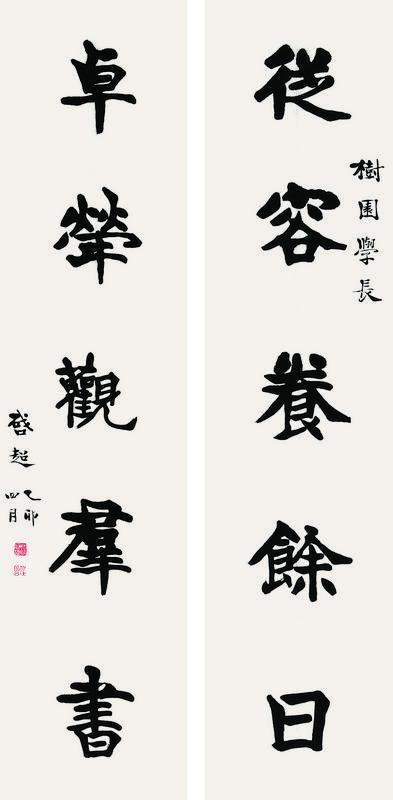 樹園學長
從容養餘日
卓犖觀羣書
啓超
乙卯
四月